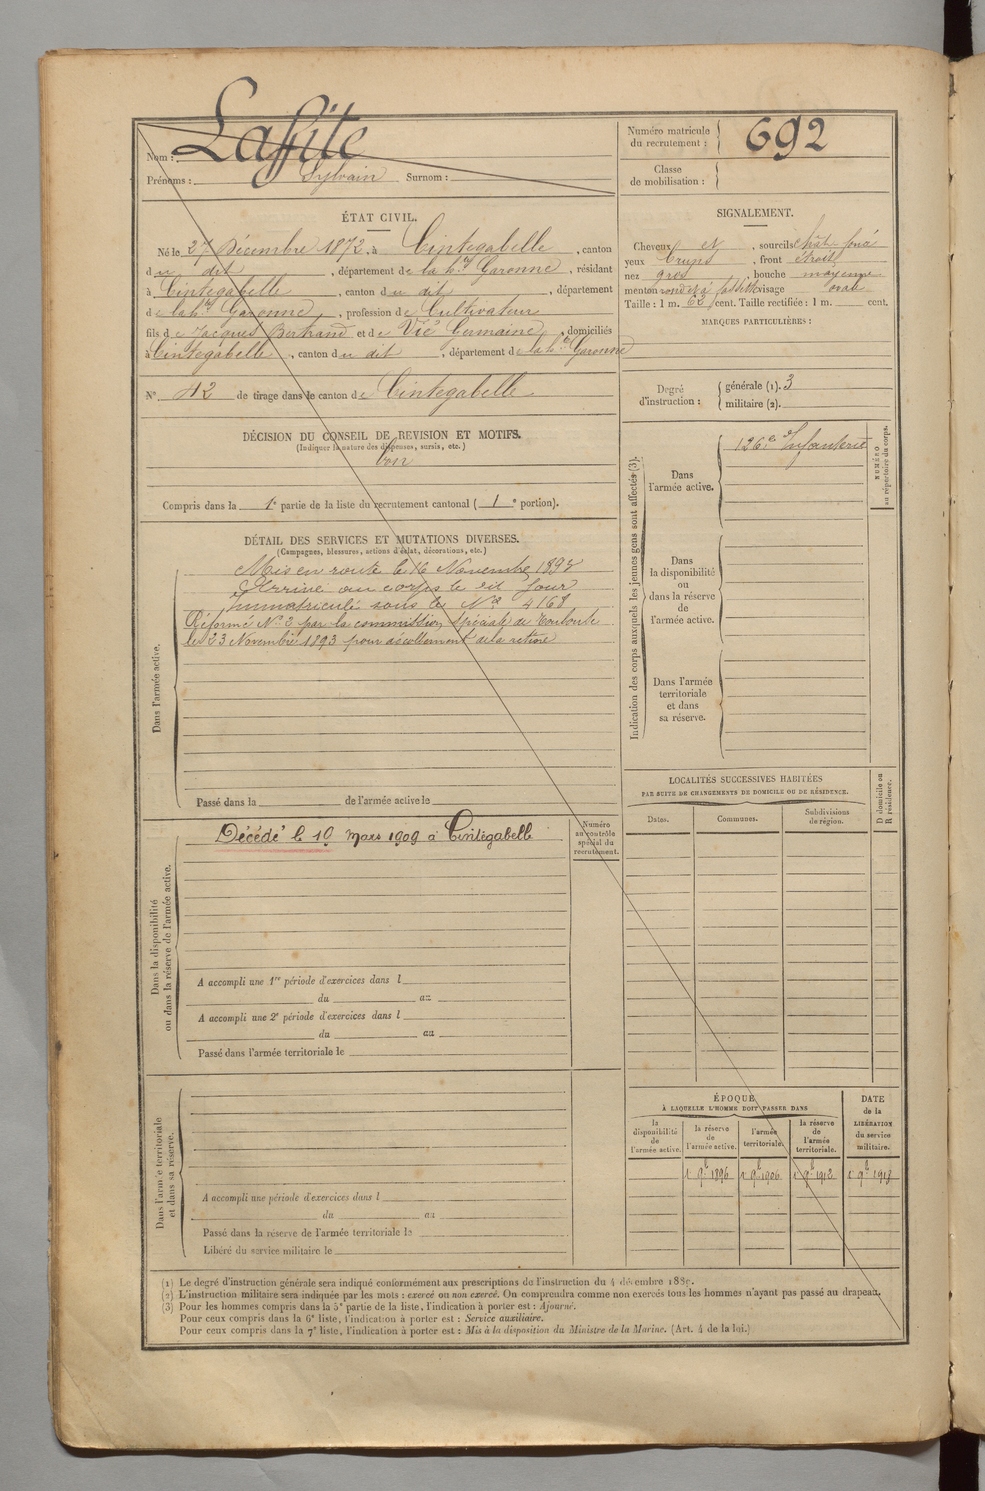 Nom : Laffite
Prénoms : Sylvain Surnom :
Numéro matricule du recrutement : 692
Classe de mobilisation :
ÉTAT CIVIL.
Né le 27 Décembre 1872, à Cintegabelle, canton
du dit, département de la hte Garonne, résidant
à Cintegabelle, canton du dit, département
de la hte Garonne, profession de Cultivateur
fils de Jacques Bertrand et de Vié Germaine, domiciliés
à Cintegabelle, canton du dit, département de la hte Garonne
N° 42 de tirage dans le canton de Cintegabelle
SIGNALEMENT.
Cheveux et, sourcils chât. foncé
yeux bruns, front étroit
nez gros, bouche moyenne
menton rond et à fossette visage ovale
Taille : 1 m. 62 cent. Taille rectifiée : 1 m. cent.
MARQUES PARTICULIÈRES :
Degré d'instruction :
générale (1). 3
militaire (2).
DÉCISION DU CONSEIL DE REVISION ET MOTIFS.
(Indiquer la nature des dispenses, sursis, etc.)
bon
Compris dans la 1e partie de la liste du recrutement cantonal ( 1 e portion).
DÉTAIL DES SERVICES ET MUTATIONS DIVERSES.
(Campagnes, blessures, actions d'éclat, décorations, etc.)
Dans l'armée active.
Mis en route le 16 Novembre
Arrivé au corps le dit jour
immatriculé sous le No 4168
Réformé No 2 par la commission spéciale de Toulouse
le 23 Novembre 1893 pour décollement de la rétine
Passé dans la de l'armée active le
Indication des corps auxquels les jeunes gens sont affectés (3).
NUMÉRO au répertoire du corps.
Dans l'armée active.
126e d'Infanterie
Dans la disponibilité ou dans la réserve de l'armée active.
Dans l'armée territoriale et dans sa réserve.
Dans la disponibilité ou dans la réserve de l'armée active.
Décédé le 19 Mars 1909 à Cintegabelle
Numéro au contrôle spécial du recrutement.
A accompli une 1re période d'exercices dans l
du au
A accompli une 2e période d'exercices dans l
du au
Passé dans l'armée territoriale le
LOCALITÉS SUCCESSIVES HABITÉES
PAR SUITE DE CHANGEMENTS DE DOMICILE OU DE RÉSIDENCE.
Dates. Communes. Subdivisions de région. D domicile ou R résidence.
Dans l'armée territoriale et dans sa réserve.
A accompli une période d'exercices dans l
du au
Passé dans la réserve de l'armée territoriale le
Libéré du service militaire le
ÉPOQUE
À LAQUELLE L'HOMME DOIT PASSER DANS
la disponibilité de l'armée active. la réserve de l'armée active. l'armée territoriale. la réserve de l'armée territoriale.
DATE de la LIBÉRATION du service militaire.
1 9bre 1896 1 9bre 1906 1 9bre 1912 1 9bre 1918
(1) Le degré d'instruction générale sera indiqué conformément aux prescriptions de l'instruction du 4 décembre 1889.
(2) L'instruction militaire sera indiquée par les mots : exercé ou non exercé. On comprendra comme non exercés tous les hommes n'ayant pas passé au drapeau.
(3) Pour les hommes compris dans la 5e partie de la liste, l'indication à porter est : Ajourné.
Pour ceux compris dans la 6e liste, l'indication à porter est : Service auxiliaire.
Pour ceux compris dans la 7e liste, l'indication à porter est : Mis à la disposition du Ministre de la Marine. (Art. 4 de la loi.)